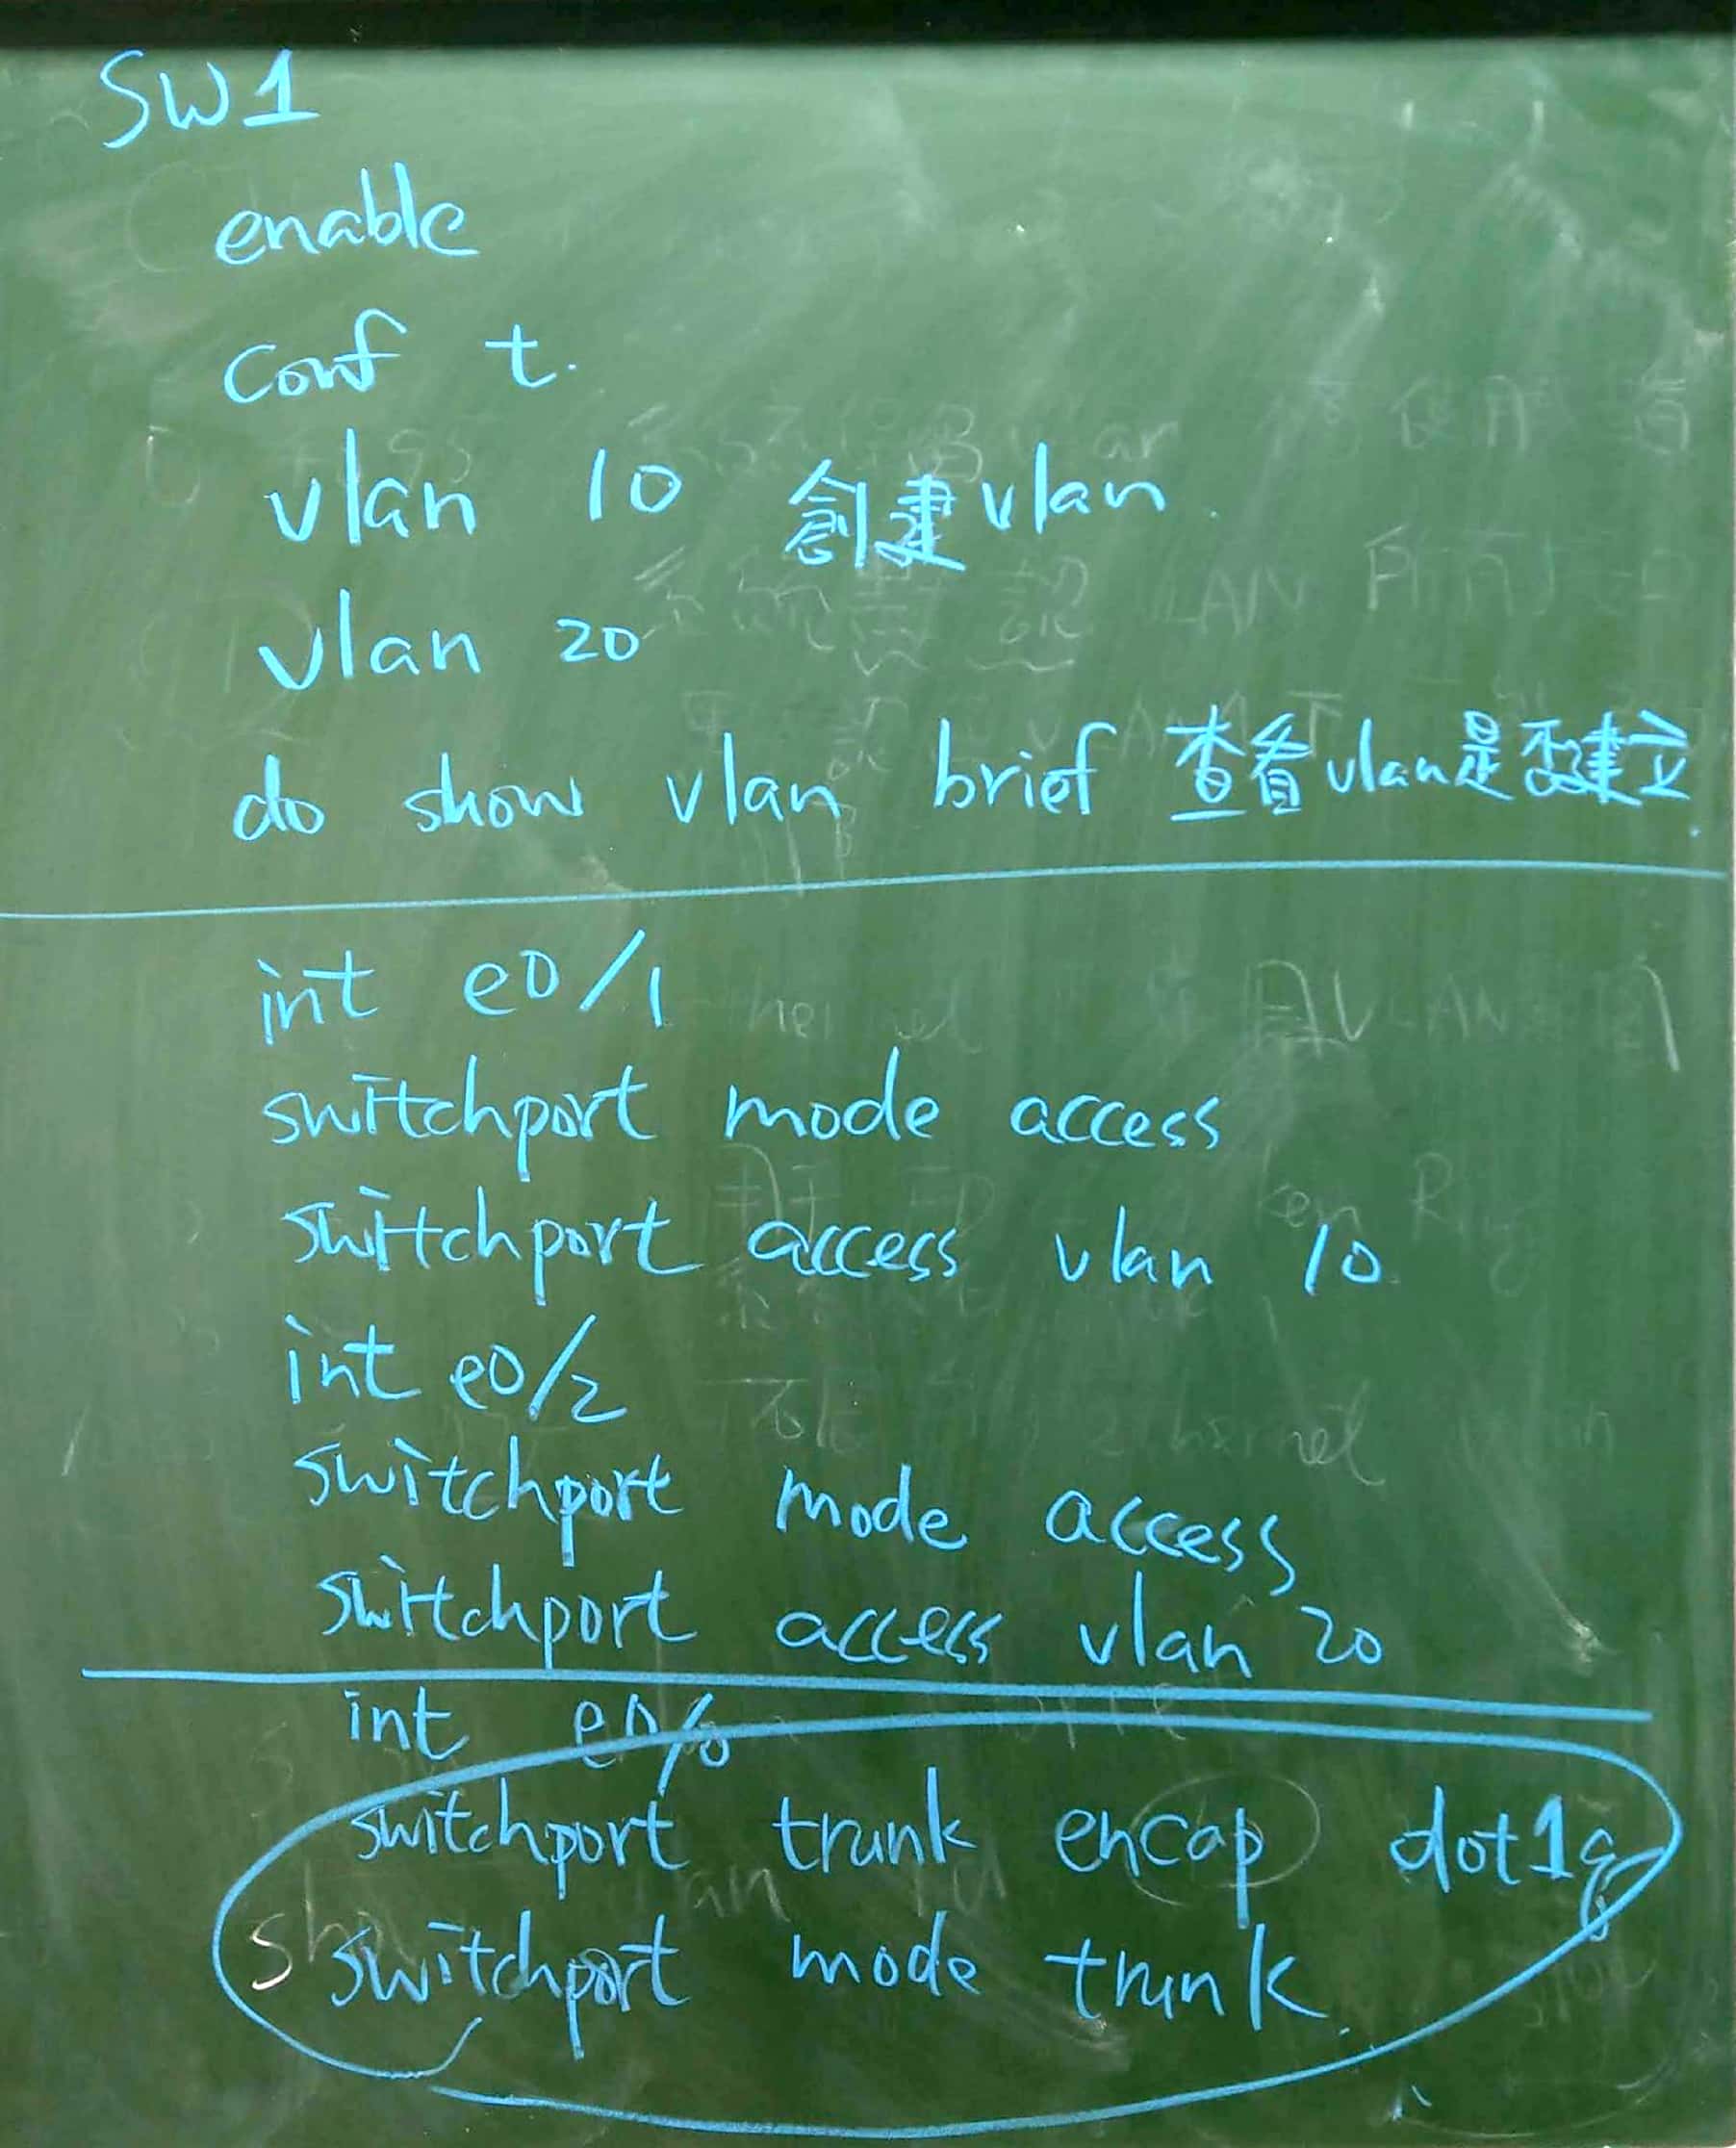 SW1
enable
conf t.
vlan 10 創建vlan.
vlan 20
do show vlan brief 查看vlan是否建立.
int e0/1
switchport mode access
switchport access vlan 10
int e0/2
switchport mode access
switchport access vlan 20
int e0/0
switchport trunk encap dot1q
switchport mode trunk.